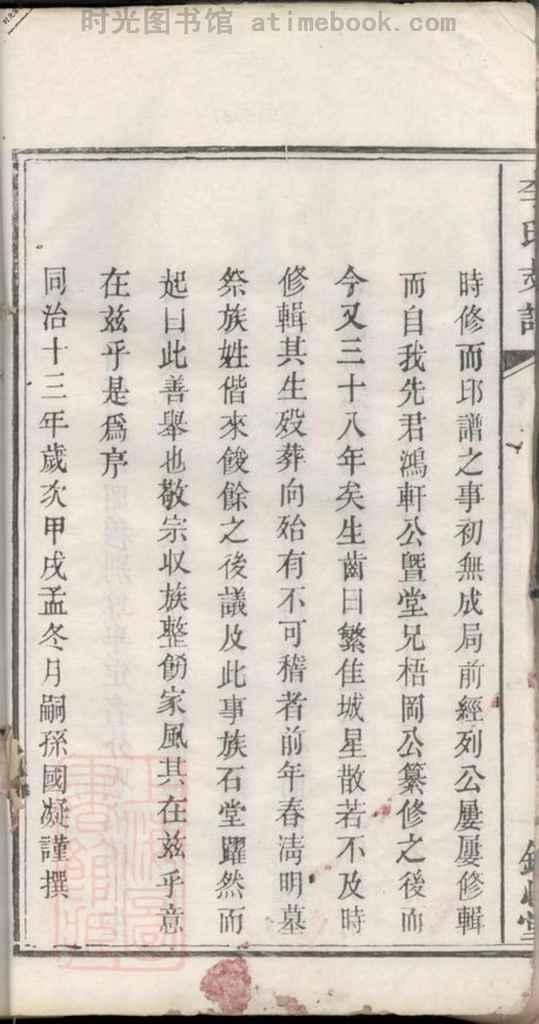 时光图书馆 atimebook.com
李氏支譜
時修而邱譜之事初無成局前經列公屢屢修輯
而自我先君鴻軒公暨堂兄梧岡公纂修之後而
今又三十八年矣生齒日繁佳城星散若不及時
修輯其生歿葬向殆有不可稽者前年春淸明墓
祭族姓偕來餕餘之後議及此事族石堂躍然而
起曰此善舉也敬宗収族整飭家風其在茲乎意
在茲乎是爲序
同治十三年歲次甲戌孟冬月嗣孫國凝謹撰